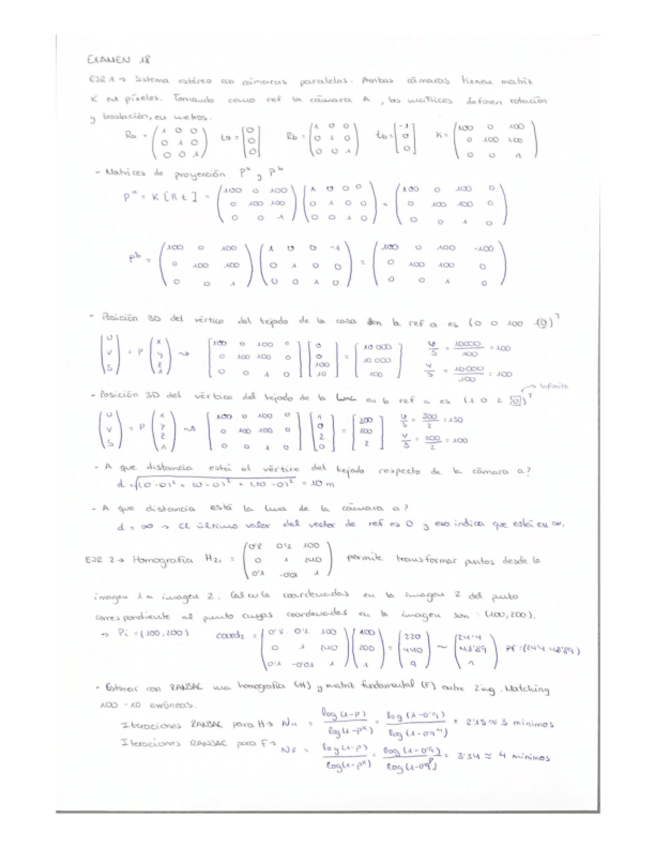 EXAMEN 18
EJR 1 → Sistema estéreo con cámaras paralelas. Ambas cámaras tienen matriz
K en píxeles. Tomando como ref la cámara A, las matrices definen rotación
y traslación, en metros.
Ra = (1 0 0; 0 1 0; 0 0 1) ta = [0; 0; 0] Rb = (1 0 0; 0 1 0; 0 0 1) tb = [-1; 0; 0] K = (100 0 100; 0 100 100; 0 0 1)
- Matrices de proyección Pª y Pᵇ
Pª = K [R t] = (100 0 100; 0 100 100; 0 0 1) (1 0 0 0; 0 1 0 0; 0 0 1 0) = (100 0 100 0; 0 100 100 0; 0 0 1 0)
Pᵇ = (100 0 100; 0 100 100; 0 0 1) (1 0 0 -1; 0 1 0 0; 0 0 1 0) = (100 0 100 -100; 0 100 100 0; 0 0 1 0)
- Posición 3D del vértice del tejado de la casa en la ref a es (0 0 100 10)ᵀ
(U; V; S) = P (x; y; z; 1) → [100 0 100 0; 0 100 100 0; 0 0 1 0] [0; 0; 100; 10] = [10 000; 10 000; 100] U/S = 10000/100 = 100 V/S = 10000/100 = 100
- Posición 3D del vértice del tejado de la Luna en la ref a es (1 0 2 0)ᵀ → Infinito
(U; V; S) = P (x; y; z; 1) → [100 0 100 0; 0 100 100 0; 0 0 1 0] [1; 0; 2; 0] = [300; 200; 2] U/S = 300/2 = 150 V/S = 200/2 = 100
- A que distancia está el vértice del tejado respecto de la cámara a?
d = √(0-0)² + (0-0)² + (10-0)² = 10 m
- A que distancia está la luna de la cámara a?
d = ∞ → el último valor del vector de ref es 0 y eso indica que está en ∞.
EJR 2 → Homografía H₂₁ = (0'8 0'2 100; 0 1 240; 0'1 -0'01 1) permite transformar puntos desde la
imagen 1 a imagen 2. Calcula coordenadas en la imagen 2 del punto
correspondiente al punto cuyas coordenadas en la imagen son: (100, 200).
→ Pi = (100, 200) coord₂ = (0'8 0'2 100; 0 1 240; 0'1 -0'01 1) (100; 200; 1) = (220; 440; 9) ~ (24'4; 48'89; 1) Pf = (24'4 48'89)
- Estimar con RANSAC una homografía (H) y matriz fundamental (F) entre 2 img. Matching
100 - 10 erróneas.
Iteraciones RANSAC para H → N_H = log(1-P)/log(1-pᵏ) = log(1-0'9)/log(1-0'9⁴) = 2'15 ≈ 3 mínimos
Iteraciones RANSAC para F → N_F = log(1-P)/log(1-pᵏ) = log(1-0'9)/log(1-0'9⁸) = 3'54 ≈ 4 mínimos